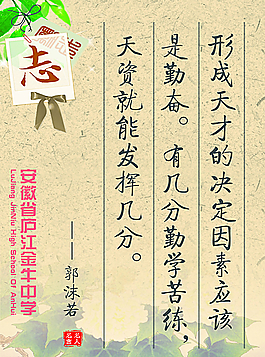 形成天才的决定因素应该
是勤奋。有几分勤学苦练,
天资就能发挥几分。
——郭沫若
志
安徽省庐江金牛中学
LuJiang JinNiu High School Of AnHui
名人
名言